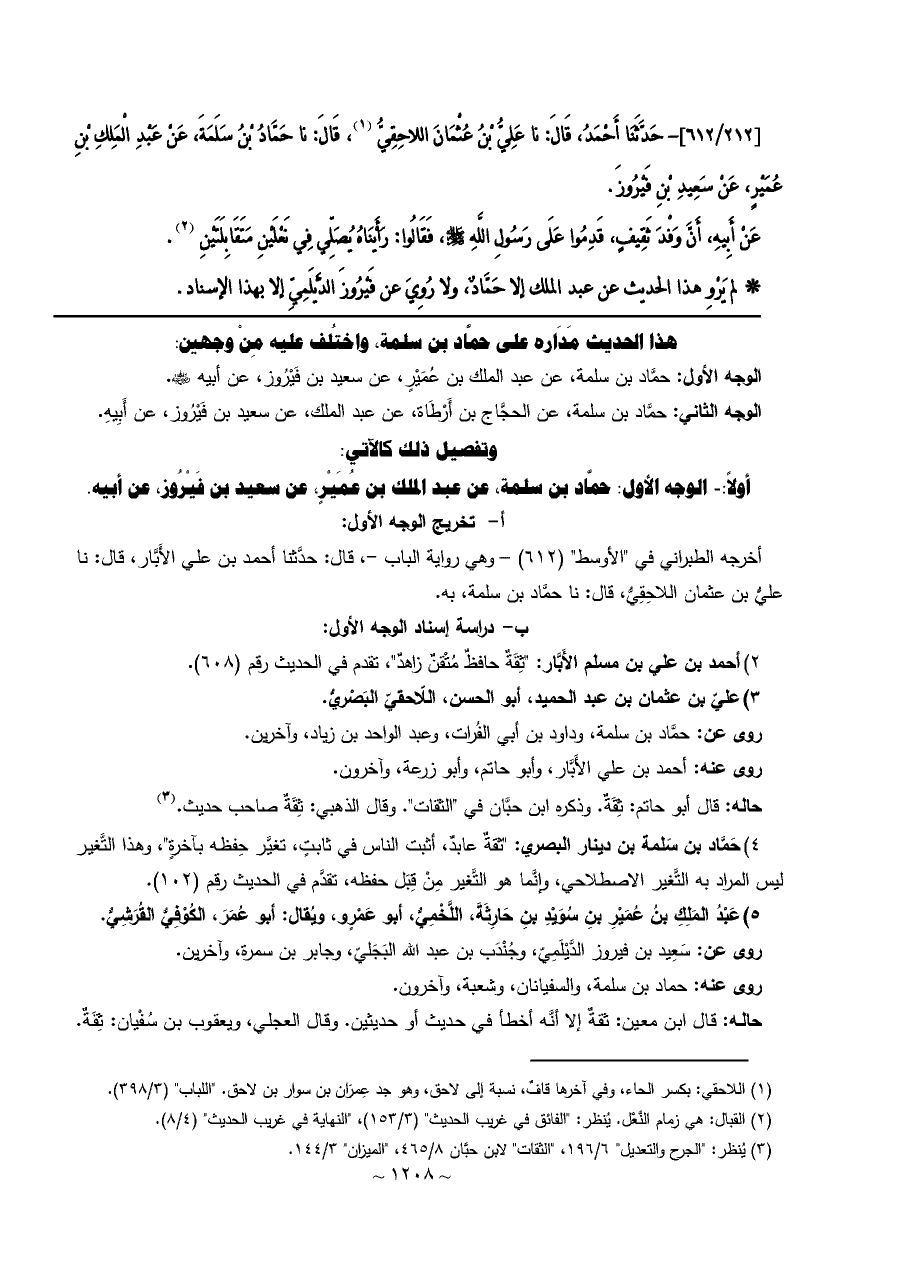 [٦١٢/٢١٢]- حَدَّثَنَا أَحْمَدُ، قَالَ: نا عَلِيُّ بْنُ عُثْمَانَ اللاحِقِيُّ (١)، قَالَ: نا حَمَّادُ بْنُ سَلَمَةَ، عَنْ عَبْدِ الْمَلِكِ بْنِ
عُمَيْرٍ، عَنْ سَعِيدِ بْنِ فَيْرُوزَ.
عَنْ أَبِيهِ، أَنَّ وَفْدَ ثَقِيفٍ، قَدِمُوا عَلَى رَسُولِ اللَّهِ ﷺ، فَقَالُوا: رَأَيْنَاهُ يُصَلِّي فِي نَعْلَيْنِ مُتَقَابِلَتَيْنِ (٢).
* لم يَرْوِ هذا الحديث عن عبد الملك إلا حَمَّادٌ، ولا رُوِيَ عن فَيْرُوزَ الدَّيْلَمِيِّ إلا بهذا الإسناد.
هذا الحديث مَدَاره على حمَّاد بن سلمة، واختُلف عليه مِنْ وجهين:
الوجه الأول: حمَّاد بن سلمة، عن عبد الملك بن عُمَيْرٍ، عن سعيد بن فَيْرُوز، عن أبيه ﷺ.
الوجه الثاني: حمَّاد بن سلمة، عن الحجَّاج بن أَرْطَاة، عن عبد الملك، عن سعيد بن فَيْرُوز، عن أَبِيهِ.
وتفصيل ذلك كالآتي:
أولاً:- الوجه الأول: حمَّاد بن سلمة، عن عبد الملك بن عُمَيْرٍ، عن سعيد بن فَيْرُوز، عن أبيه.
أ- تخريج الوجه الأول:
أخرجه الطبراني في "الأوسط" (٦١٢) – وهي رواية الباب –، قال: حدَّثنا أحمد بن علي الأَبَّار، قال: نا
عليُّ بن عثمان اللاحِقِيُّ، قال: نا حمَّاد بن سلمة، به.
ب- دراسة إسناد الوجه الأول:
٢) أحمد بن علي بن مسلم الأَبَّار: "ثِقَةٌ حافظٌ مُتْقنٌ زاهدٌ"، تقدم في الحديث رقم (٦٠٨).
٣) عليّ بن عثمان بن عبد الحميد، أبو الحسن، اللّاحقيّ البَصْريُّ.
روى عن: حمَّاد بن سلمة، وداود بن أبي الفُرات، وعبد الواحد بن زياد، وآخرين.
روى عنه: أحمد بن علي الأَبَّار، وأبو حاتم، وأبو زرعة، وآخرون.
حاله: قال أبو حاتم: ثِقَةٌ. وذكره ابن حبَّان في "الثقات". وقال الذهبي: ثِقَةٌ صاحب حديث.(٣)
٤) حَمَّاد بن سَلَمة بن دينار البصري: "ثقةٌ عابدٌ، أثبت الناس في ثابتٍ، تغيَّر حِفظه بآخرةٍ"، وهذا التَّغير
ليس المراد به التَّغير الاصطلاحي، وإنَّما هو التَّغير مِنْ قِبَل حفظه، تقدَّم في الحديث رقم (١٠٢).
٥) عَبْدُ المَلِكِ بنُ عُمَيْرِ بنِ سُوَيْدِ بنِ حَارِثَةَ، اللَّخْمِيُّ، أبو عَمْرٍو، ويُقال: أبو عُمَرَ، الكُوْفِيُّ القُرَشِيُّ.
روى عن: سَعِيد بن فيروز الدَّيْلَمِيّ، وجُنْدَب بن عبد الله البَجَليّ، وجابر بن سمرة، وآخرين.
روى عنه: حماد بن سلمة، والسفيانان، وشعبة، وآخرون.
حاله: قال ابن معين: ثقةٌ إلا أنَّه أخطأ في حديث أو حديثين. وقال العجلي، ويعقوب بن سُفْيان: ثِقَةٌ.
(١) اللاحقي: بكسر الحاء، وفي آخرها قافٌ، نسبة إلى لاحق، وهو جد عِمرَان بن سوار بن لاحق. "اللباب" (٣٩٨/٣).
(٢) القبال: هي زمام النَّعْل. يُنظر: "الفائق في غريب الحديث" (١٥٣/٣)، "النهاية في غريب الحديث" (٨/٤).
(٣) يُنظر: "الجرح والتعديل" ١٩٦/٦، "الثقات" لابن حبَّان ٤٦٥/٨، "الميزان" ١٤٤/٣.
~ ١٢٠٨ ~